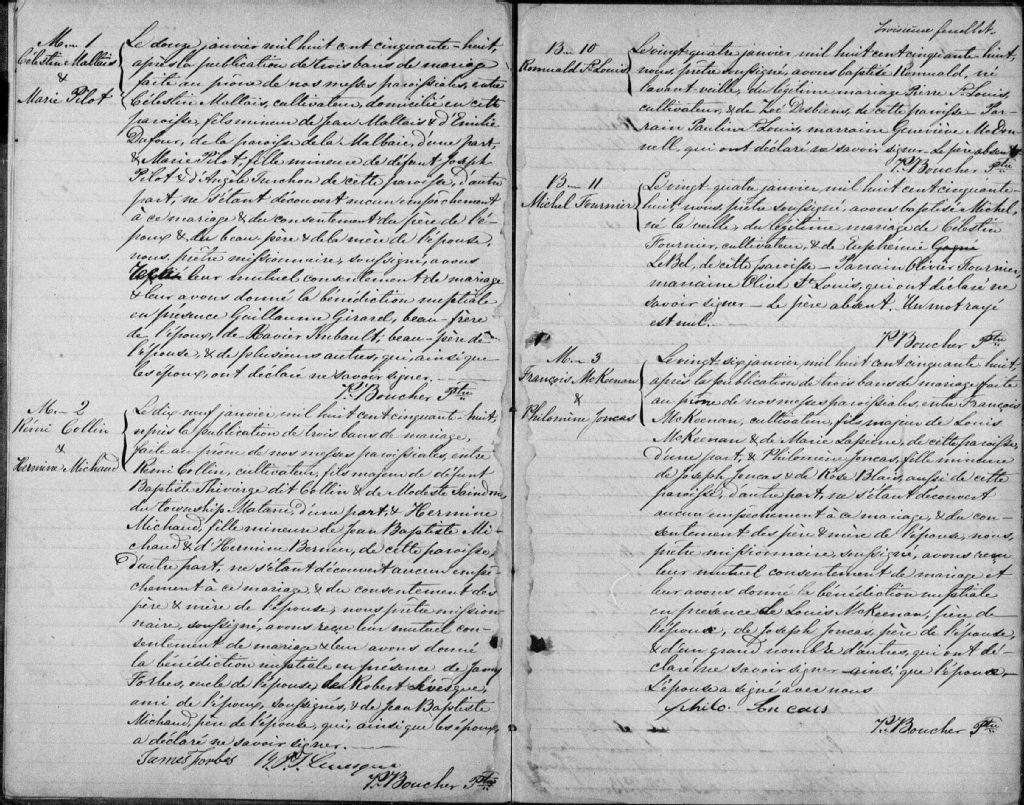 M— 1
Célestin Mallais
&
Marie Pilot
Le douze janvier mil huit cent cinquante-huit,
après la publication de trois bans de mariage
faite au prône de nos messes paroissiales, entre
Célestin Mallais, cultivateur, domicilié en cette
paroisse, fils mineur de Jean Mallais & d'Emilie
Dufour, de la paroisse de la Malbaie, d'une part,
& Marie Pilot, fille mineure de défunt Joseph
Pilot & d'Angèle Turchon de cette paroisse, d'autre
part, ne s'étant découvert aucun empêchement
à ce mariage & du consentement du père de l'é-
poux & du beau-père & de la mère de l'épouse,
nous, prêtre missionnaire, soussigné, avons
leur mutuel consentement de mariage
& leur avons donné la bénédiction nuptiale
en présence Guillaume Girard, beau-frère
de l'époux, de Xavier Imbault, beau-père de
l'épouse, & de plusieurs autres, qui, ainsi que
les époux, ont déclaré ne savoir signer.
P. Boucher Ptre
M— 2
Rémi Collin
&
Hermine Michaud
Le dix neuf janvier mil huit cent cinquante huit,
après la publication de trois bans de mariage,
faite au prone de nos messes paroissiales, entre
Remi Collin, cultivateur, fils majeur de défunt
Baptiste Thivierge dit Collin & de Modeste Saindon
du township Matane, d'une part, & Hermine
Michaud, fille mineure de Jean Baptiste Mi-
chaud & d'Hermine Bernier, de cette paroisse,
d'autre part, ne s'étant découvert aucun empê-
chement à ce mariage, & du consentement des
père & mère de l'épouse, nous prêtre mission-
naire, soussigné, avons reçu leur mutuel con-
sentement de mariage & leur avons donné
la bénédiction nuptiale en présence de James
Forbes, oncle de l'épouse, de Robert Levesque,
ami de l'époux, soussignés, & de Jean Baptiste
Michaud, père de l'épouse, qui, ainsi que les époux,
a déclaré ne savoir signer.
James Forbes Levesque
P. Boucher Ptre
Troisième feuillet.
B— 10
Romuald St Louis
Le vingt quatre janvier mil huit cent cinquante huit,
nous, prêtre soussigné, avons baptisé Romuald, né
l'avant veille, du légitime mariage Pierre St Louis,
cultivateur, & de Zoé Desbiens, de cette paroisse— Par-
rain Paulin St Louis, marraine Geneviève McDon-
nell, qui ont déclaré ne savoir signer— Le père absent
P. Boucher Ptre
B— 11
Michel Fournier
Le vingt quatre janvier, mil huit cent cinquante-
huit, nous, prêtre soussigné, avons baptisé Michel,
né la veille, du légitime mariage de Célestin
Fournier, cultivateur, & de Euphémie Gagné
LeBel, de cette paroisse— Parrain Olivier Fournier,
marraine Olive St Louis, qui ont déclaré ne
savoir signer— Le père absent. Un mot rayé
est nul.
P. Boucher Ptre
M— 3
François McKeenan
&
Philomène Joncas
Le vingt six janvier, mil huit cent cinquante huit,
après la publication de trois bans de mariage faite
au prône de nos messes paroissiales entre François
McKeenan, cultivateur, fils majeur de Louis
McKeenan & de Marie Lapierre, de cette paroisse,
d'une part, & Philomène Joncas, fille mineure
de Joseph Joncas & de Rose Blais, aussi de cette
paroisse, d'autre part, ne s'étant découvert
aucun empêchement à ce mariage, & du con-
sentement des père & mère de l'épouse, nous,
prêtre missionnaire, soussigné, avons reçu
leur mutuel consentement de mariage et
leur avons donné la bénédiction nuptiale
en présence de Louis McKeenan, père de
l'époux, de Joseph Joncas, père de l'épouse,
& d'un grand nombre d'autres, qui ont dé-
claré ne savoir signer ainsi que l'époux—
L'épouse a signé avec nous
philo. Encais
P. Boucher Ptre